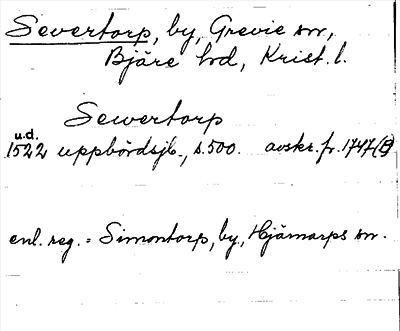 Severtorp, by, Grevie sn,
Bjäre hd, Krist. l.
Sewertorp
u.d.
1522 uppbördsjb., s. 500. avskr. fr. 1747 (B)
enl. reg. = Simontorp, by, Hjärnarps sn.